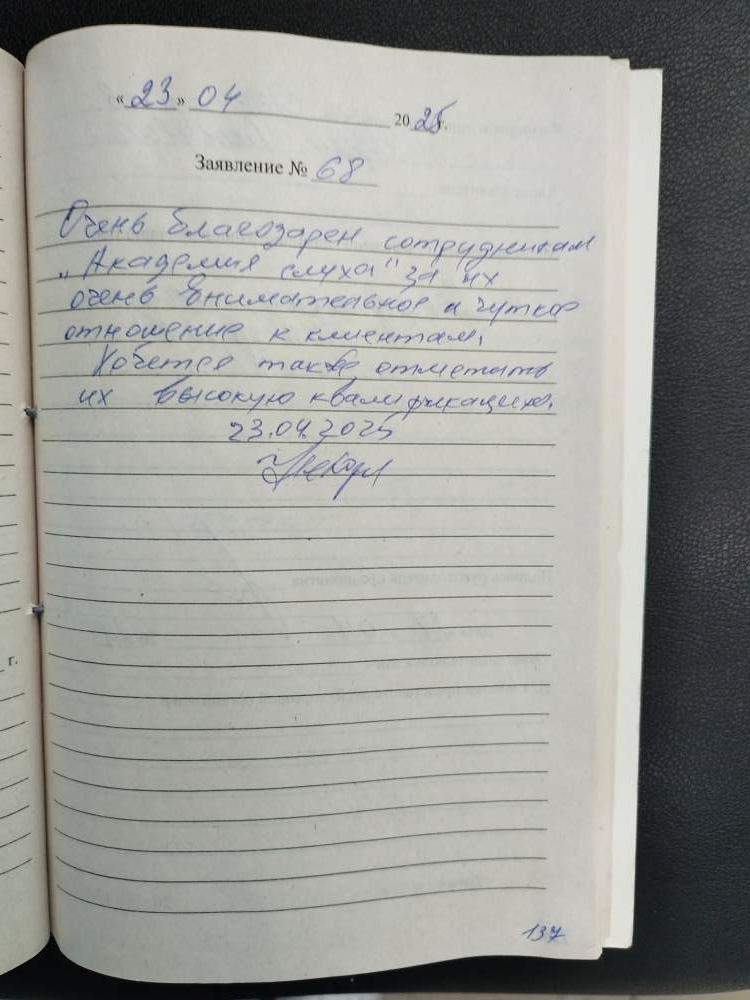 «23» 04 2025 г.
Заявление № 68
Очень благодарен сотрудникам
„Академия слуха" за их
очень внимательное и чуткое
отношение к клиентам.
Хочется также отметить
их высокую квалификацию.
23.04.2025
г.
137